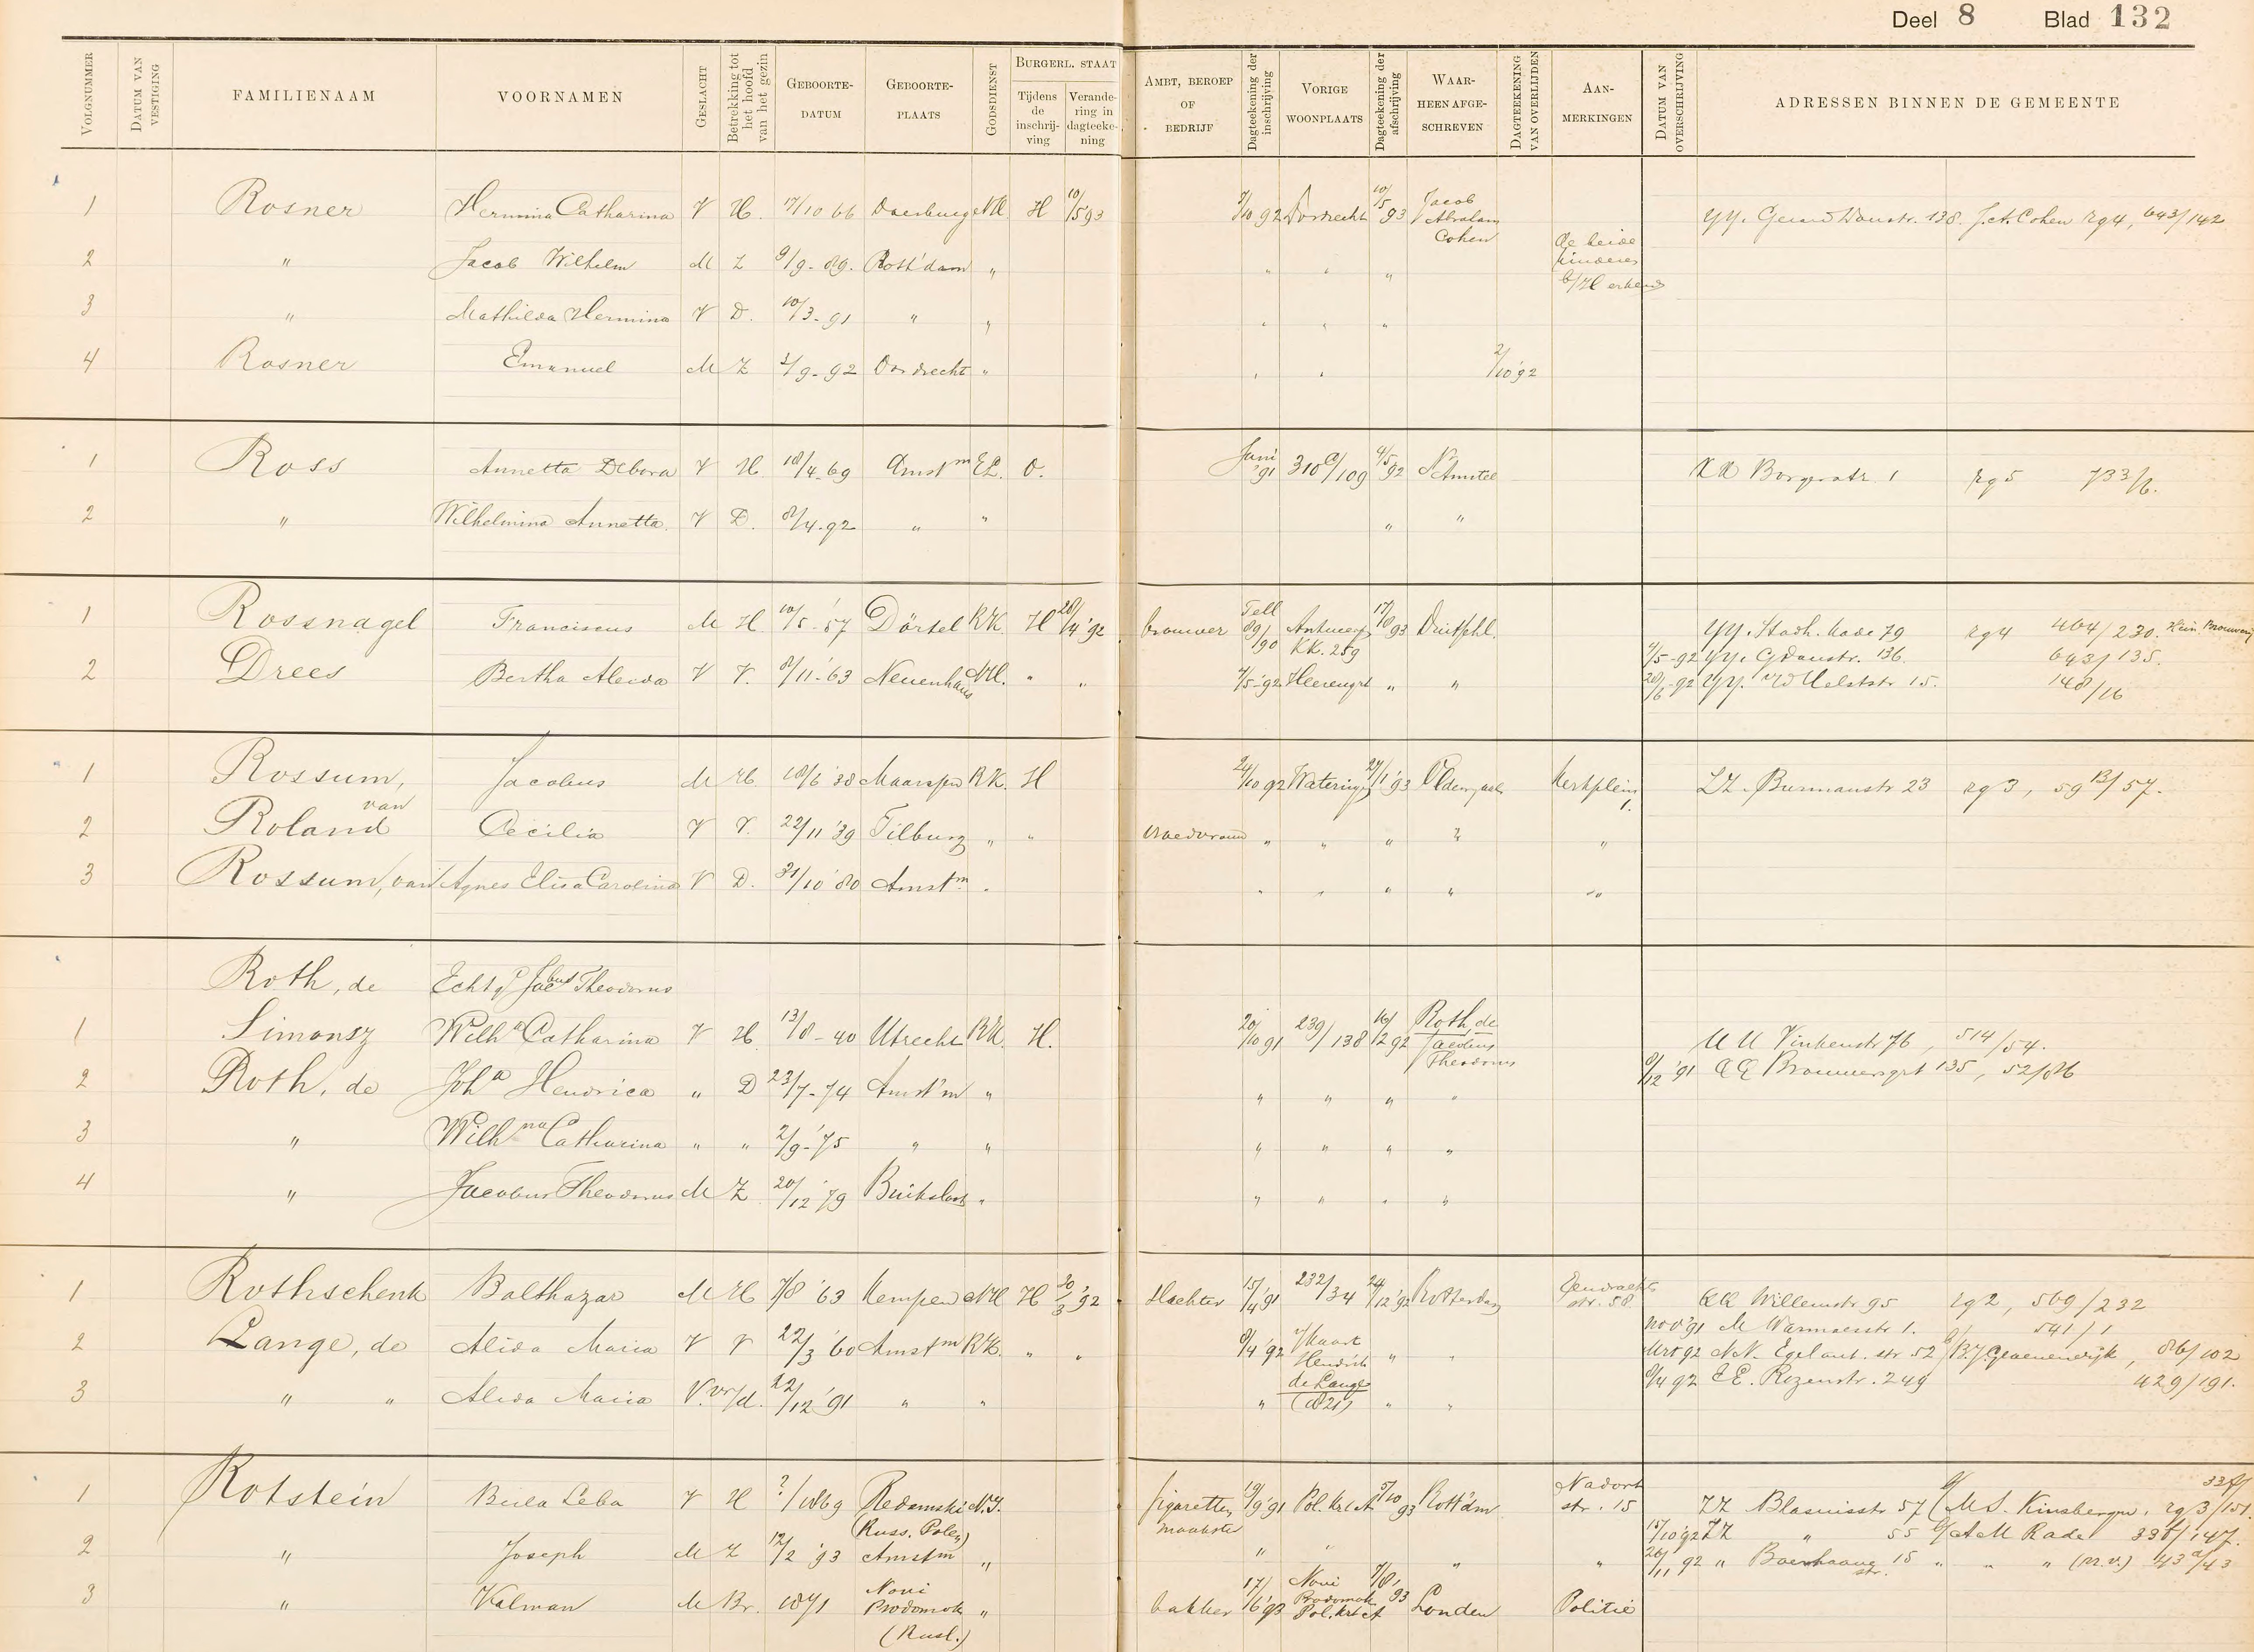 Deel 8 Blad 132
VOLGNUMMER DATUM VAN VESTIGING FAMILIENAAM VOORNAMEN GESLACHT Betrekking tot het hoofd van het gezin GEBOORTE-DATUM GEBOORTE-PLAATS GODSDIENST BURGERL. STAAT Tijdens de inschrijving Verandering in dagteekening AMBT, BEROEP OF BEDRIJF Dagteekening der inschrijving VORIGE WOONPLAATS Dagteekening der afschrijving WAARHEEN AFGESCHREVEN DAGTEEKENING VAN OVERLIJDEN AANMERKINGEN DATUM VAN OVERSCHRIJVING ADRESSEN BINNEN DE GEMEENTE
1 Rosner Hermina Catharina V H. 17/10 66 NH H 10/5 93 7/10 92 Dordrecht 10/5 93 Jacob Abraham Cohen YY. Gerard Doustr. 138. J.A. Cohen rg4, 643/142
2 " Jacob Wilhelm M Z 9/9-89. Rott'dam " " " " de beide kinderen b/H erkend
3 " Mathilda Hermina V D. 10/3-91 " " " " "
4 Rosner Emanuel M Z 2/9-92 Dordrecht " " " 2/10'92
1 Ross Annetta Debora V H 18/4-69 Amst m EL. O. Juni '91 310C/109 4/5 92 N Amstel 1 rg5 733/6.
2 " Wilhelmina Annetta. V D. 8/4-92 " " " "
1 Rossnagel Franciscus M H 10/5-'57 Dörtel RK H 28/4'92 brouwer Tell 89/190 Antwerp KK. 259 17/8 93 Duitschl. YY. Stadh. kade 79 rg4 464/230. Hein. Brouwerij
4/5-92 YY. G Doustr. 136. 643/135.
2 Drees Bertha Aleida V V. 8/11-63 Neuenhaus NH. " " 4/5-'92 Heerengrt " " 20/6-92 YY. vd Helststr 15. 148/16
1 Rossum, van Jacobus M H. 18/6'38 Maarssen RK. H 24/10 92 Wateringen 27/1'93 Oldenzaal Kerkplein 1. ZZ. Burmanstr 23 rg3, 59B/57.
2 Roland Cecilia V V. 22/11'39 Tilburg " " vroedvrouw " " " " "
3 Rossum, van Agnes Elisa Carolina V D. 31/10'80 Amst m " " " " " "
Roth, de Echtg Jacbus Theodorus
1 Simonsz Wilh a Catharina V H 13/8-40 Utrecht RK. H. 20/10 91 239/138 16/12 92 Roth, de Jacobus Theodorus UU Vinkenstr 76, 514/54.
8/12'91 Brouwersgrt 135, 52/86
2 Roth, de Joh a Hendrica " D 23/7-74 Amst'm " " " " "
3 " Wilh na Catharina " " 2/9-'75 " " " " " "
4 " Jacobus Theodorus M Z 20/12'79 Buiksloot " " " " "
1 Rothschenk Balthazar M H 7/8'63 Kempen NH H 30/3'92 slachter 15/4'91 232/34 24/12'92 Rotterdam Eendrachts str. 58. Willemstr 95 rg2, 569/232
nov'91 M Warmoesstr 1. 541/1
2 Lange, de Alida Maria V V 22/3'60 Amst m RK. " " 8/4'92 v/kaart Hendrik de Lange (821) " " Mrt 92 NN. Egelant. str 52 b/B.J. Groenendijk, 86/102
8/4 92 EE. Rozenstr. 249 429/191.
3 " " Alida Maria V. vr/d. 22/12'91 " " " " "
1 Rotstein Beila Leba V H ?/1869 Redomski (Russ. Polen) N.I. sigaretten maakster 19/9'91 Pol. Krt A 5/10 93 Rott'dm Nadorst str. 15 ZZ Blasiusstr 57 (b/ M S. Kinsbergen, rg3 337/151.
15/10'92 ZZ " 55 b/ A M Rade 338/147.
2 " Joseph M Z 12/2'93 Amst m " " " " " 26/11 92 " Boerhaave str. 15 " " " (m.v.) 143a/43
3 " Kalman M Br. 1871 Novi Prodomok (Rusl.) " bakker 17/6'93 Novi Prodomok Pol. krt A 7/8'93 Londen Politie